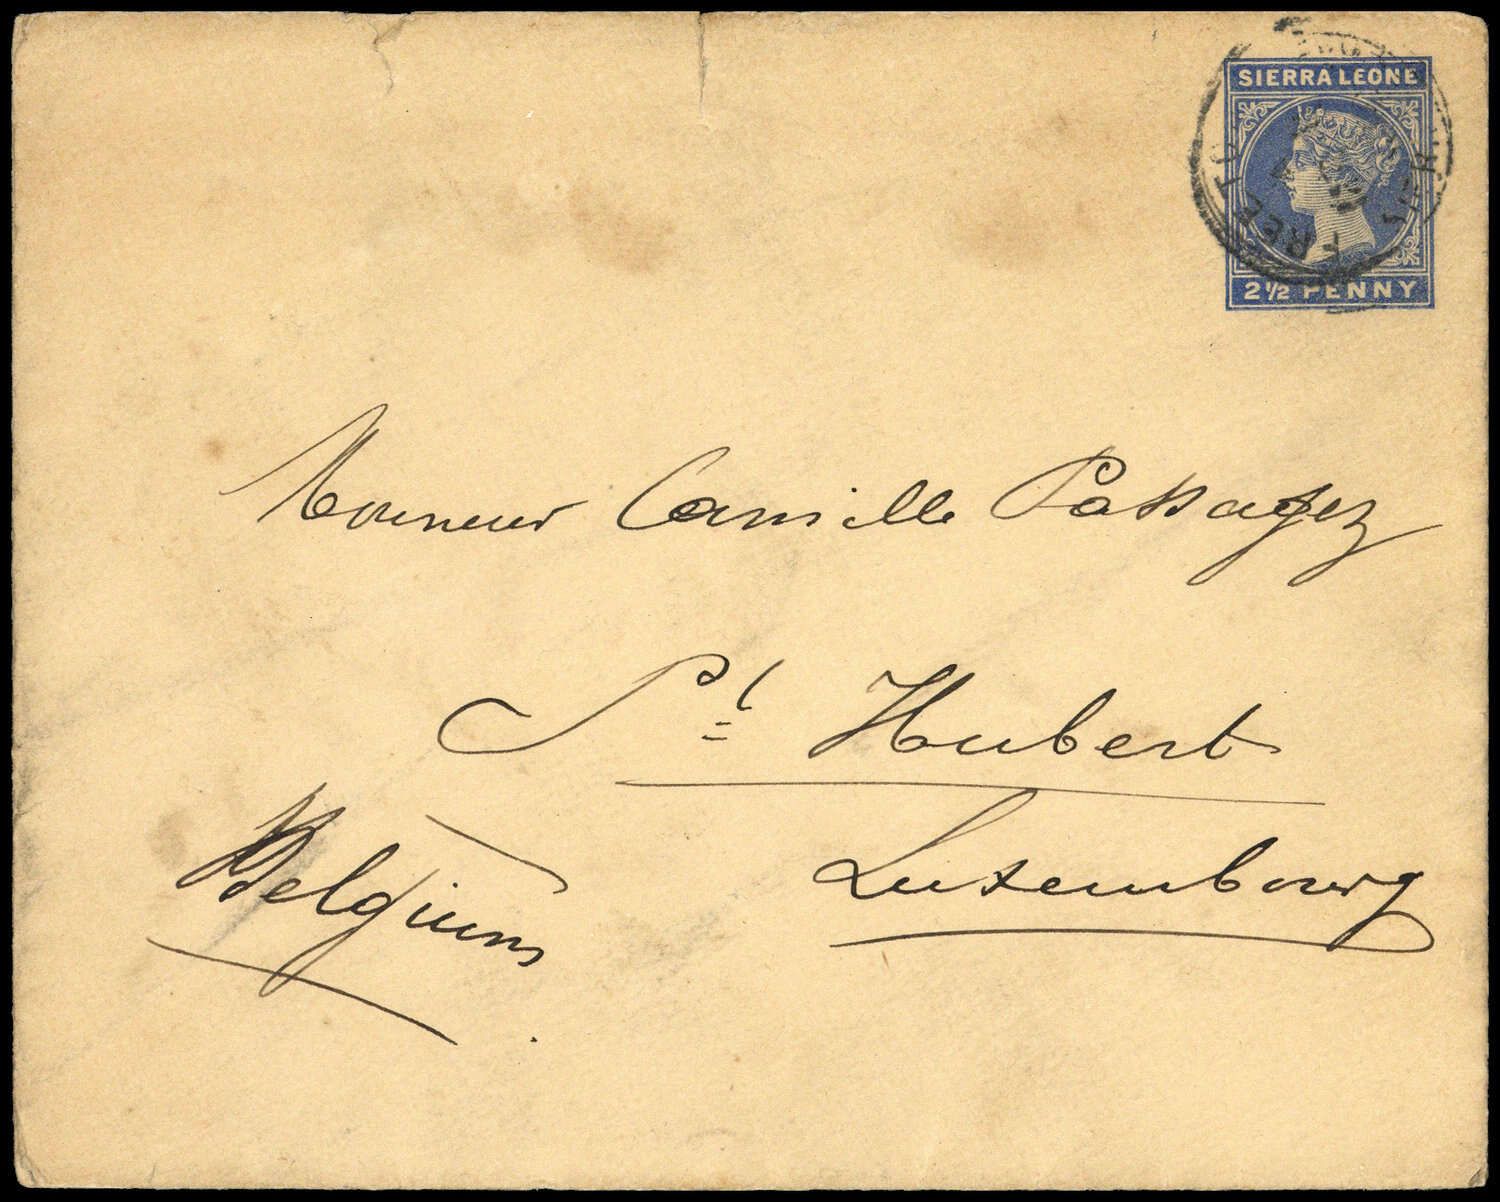 SIERRA LEONE
FREETO
2½ PENNY
Monsieur Camille Passagez
St Hubert
Luxembourg
Belgium